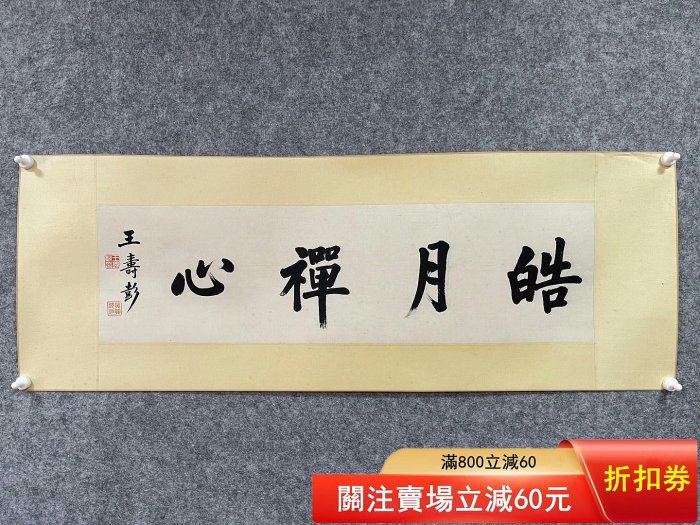 皓月禪心
王壽彭
滿800立減60
關注賣場立減60元
折扣券